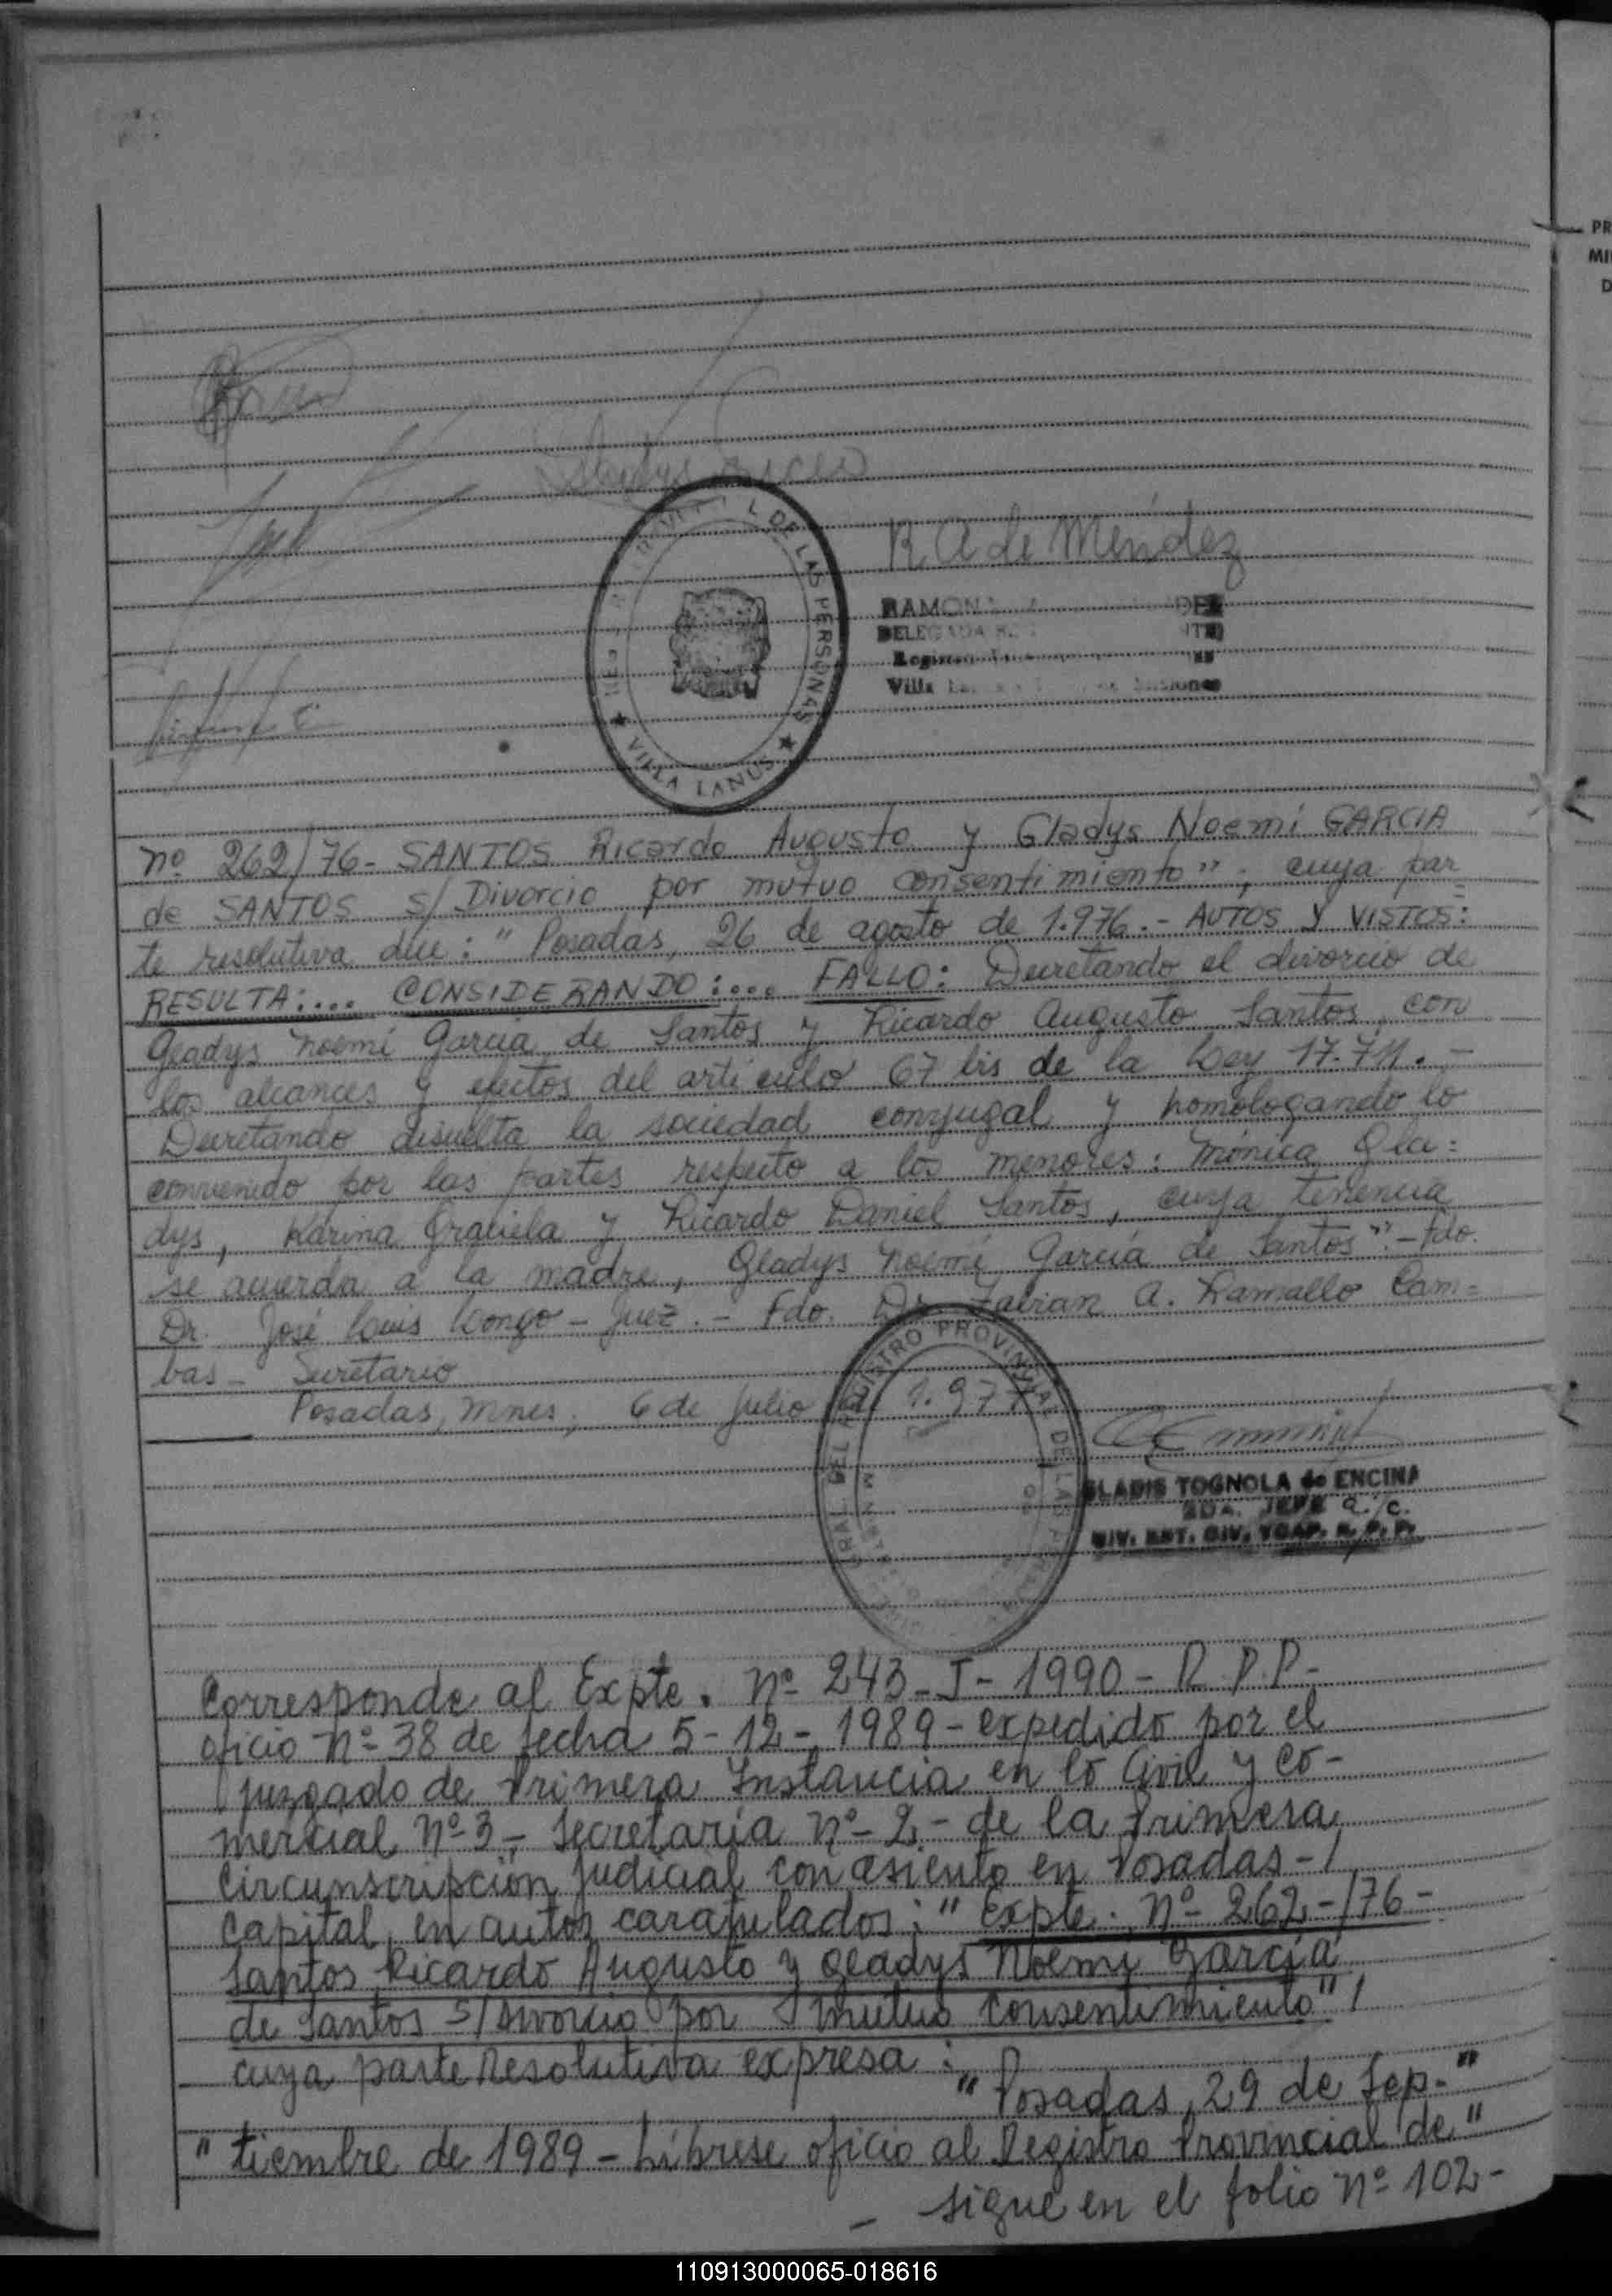 PR
MI
D
Gladys Garcia
R A de Méndez
L DE LAS PERSONAS
VILLA LANUS
RAMONA
DELEGADA
Villa
nº 262/76- SANTOS Ricardo Augusto y Gladys Noemí GARCIA
de SANTOS s/ Divorcio por mutuo consentimiento", cuya par
te resolutiva dice: "Posadas, 26 de agosto de 1.976.- AUTOS Y VISTOS:
RESULTA:.... CONSIDERANDO:.... FALLO: Decretando el divorcio de
Gladys Noemí García de Santos y Ricardo Augusto Santos, con
los alcances y efectos del artículo 67 bis de la Ley 17.711.-
Decretando disuelta la sociedad conyugal y homologando lo
convenido por las partes respecto a los menores: Mónica Gla=
dys, Karina Graciela y Ricardo Daniel Santos, cuya tenencia
se acuerda a la madre, Gladys Noemí García de Santos".- Fdo.
Dr. José Luis Longo - Juez.- Fdo. Dr. Fabian A. Ramallo Cam=
bas - Secretario
Posadas, Mnes, 6 de Julio de 1.977
REGISTRO PROVINCIAL DE LAS PERSONAS
GLADIS TOGNOLA de ENCINA
SDA. JEFE a/c.
DIV. EST. CIV. YCAP. R. P. P.
Corresponde al Expte. Nº 243-I-1990- R.P.P-
oficio nº 38 de fecha 5-12-1989- expedido por el
juzgado de Primera Instancia en lo Civil y Co-
mercial Nº 3- Secretaría Nº 2- de la Primera
Circunscripción Judicial con asiento en Posadas-/
Capital, en autos caratulados: "Expte. Nº 262-/76-
Santos Ricardo Augusto y Gladys Noemi García
de Santos s/Divorcio por mutuo consentimiento"/
cuya parte Resolutiva expresa:
"Posadas, 29 de Sep-"
"tiembre de 1989- Líbrese oficio al Registro Provincial de"
- sigue en el folio Nº 102-
110913000065-018616